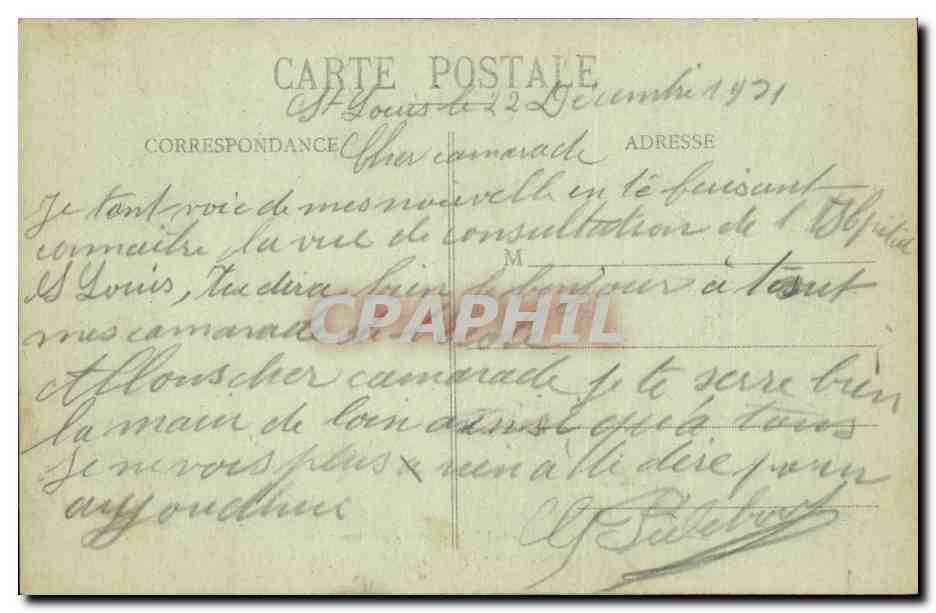 CARTE POSTALE
St Louis le 22 Décembre 1921
CORRESPONDANCE
ADRESSE
Cher camarade
Je tant voie de mes nouvelle en té faisant
connaitre la vue de consultation de l'Hopital
M
St Louis, Tu dira bien le bonjour à tout
mes camarade
CPAPHIL
Allons cher camarade je te serre bien
la main de loin ainsi qu'a tous
Je ne vois plus rien à te dire pour
aujoudhui